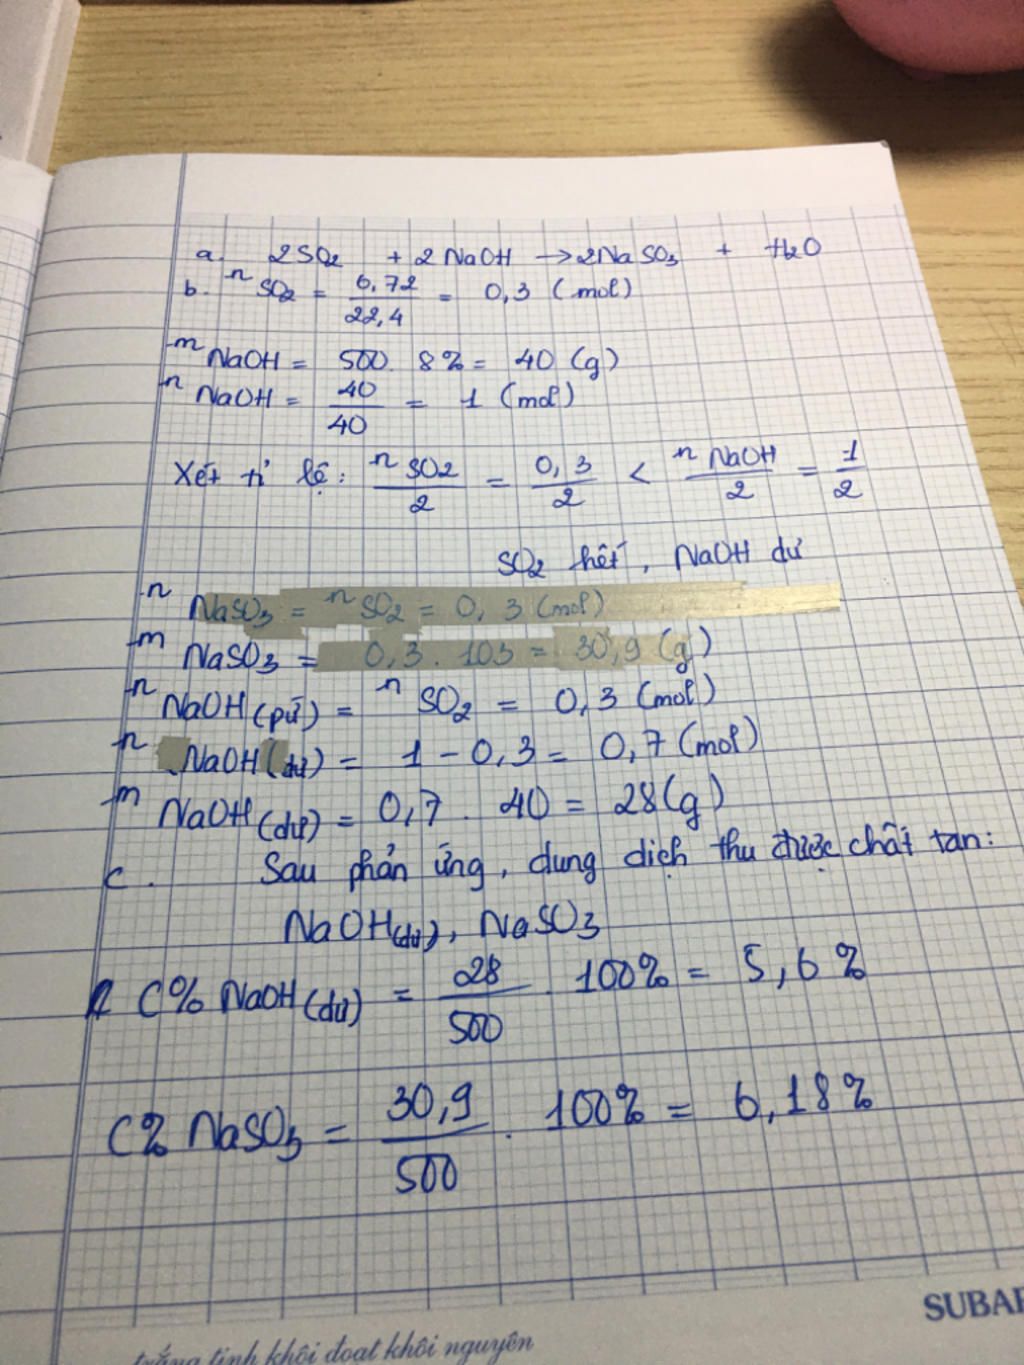 a. 2SO2 + 2NaOH → 2NaSO3 + H2O
b. nSO2 = 6,72/22,4 = 0,3 (mol)
mNaOH = 500. 8% = 40 (g)
nNaOH = 40/40 = 1 (mol)
Xét tỉ lệ: nSO2/2 = 0,3/2 < nNaOH/2 = 1/2
SO2 hết, NaOH dư
nNaSO3 = nSO2 = 0,3 (mol)
mNaSO3 = 0,3. 103 = 30,9 (g)
nNaOH(pứ) = nSO2 = 0,3 (mol)
nNaOH(dư) = 1 - 0,3 = 0,7 (mol)
mNaOH(dư) = 0,7. 40 = 28(g)
c. Sau phản ứng, dung dịch thu được chất tan:
NaOH(dư), NaSO3
C% NaOH(dư) = 28/500 . 100% = 5,6%
C% NaSO3 = 30,9/500 . 100% = 6,18%
trắng tinh khôi đoạt khôi nguyên